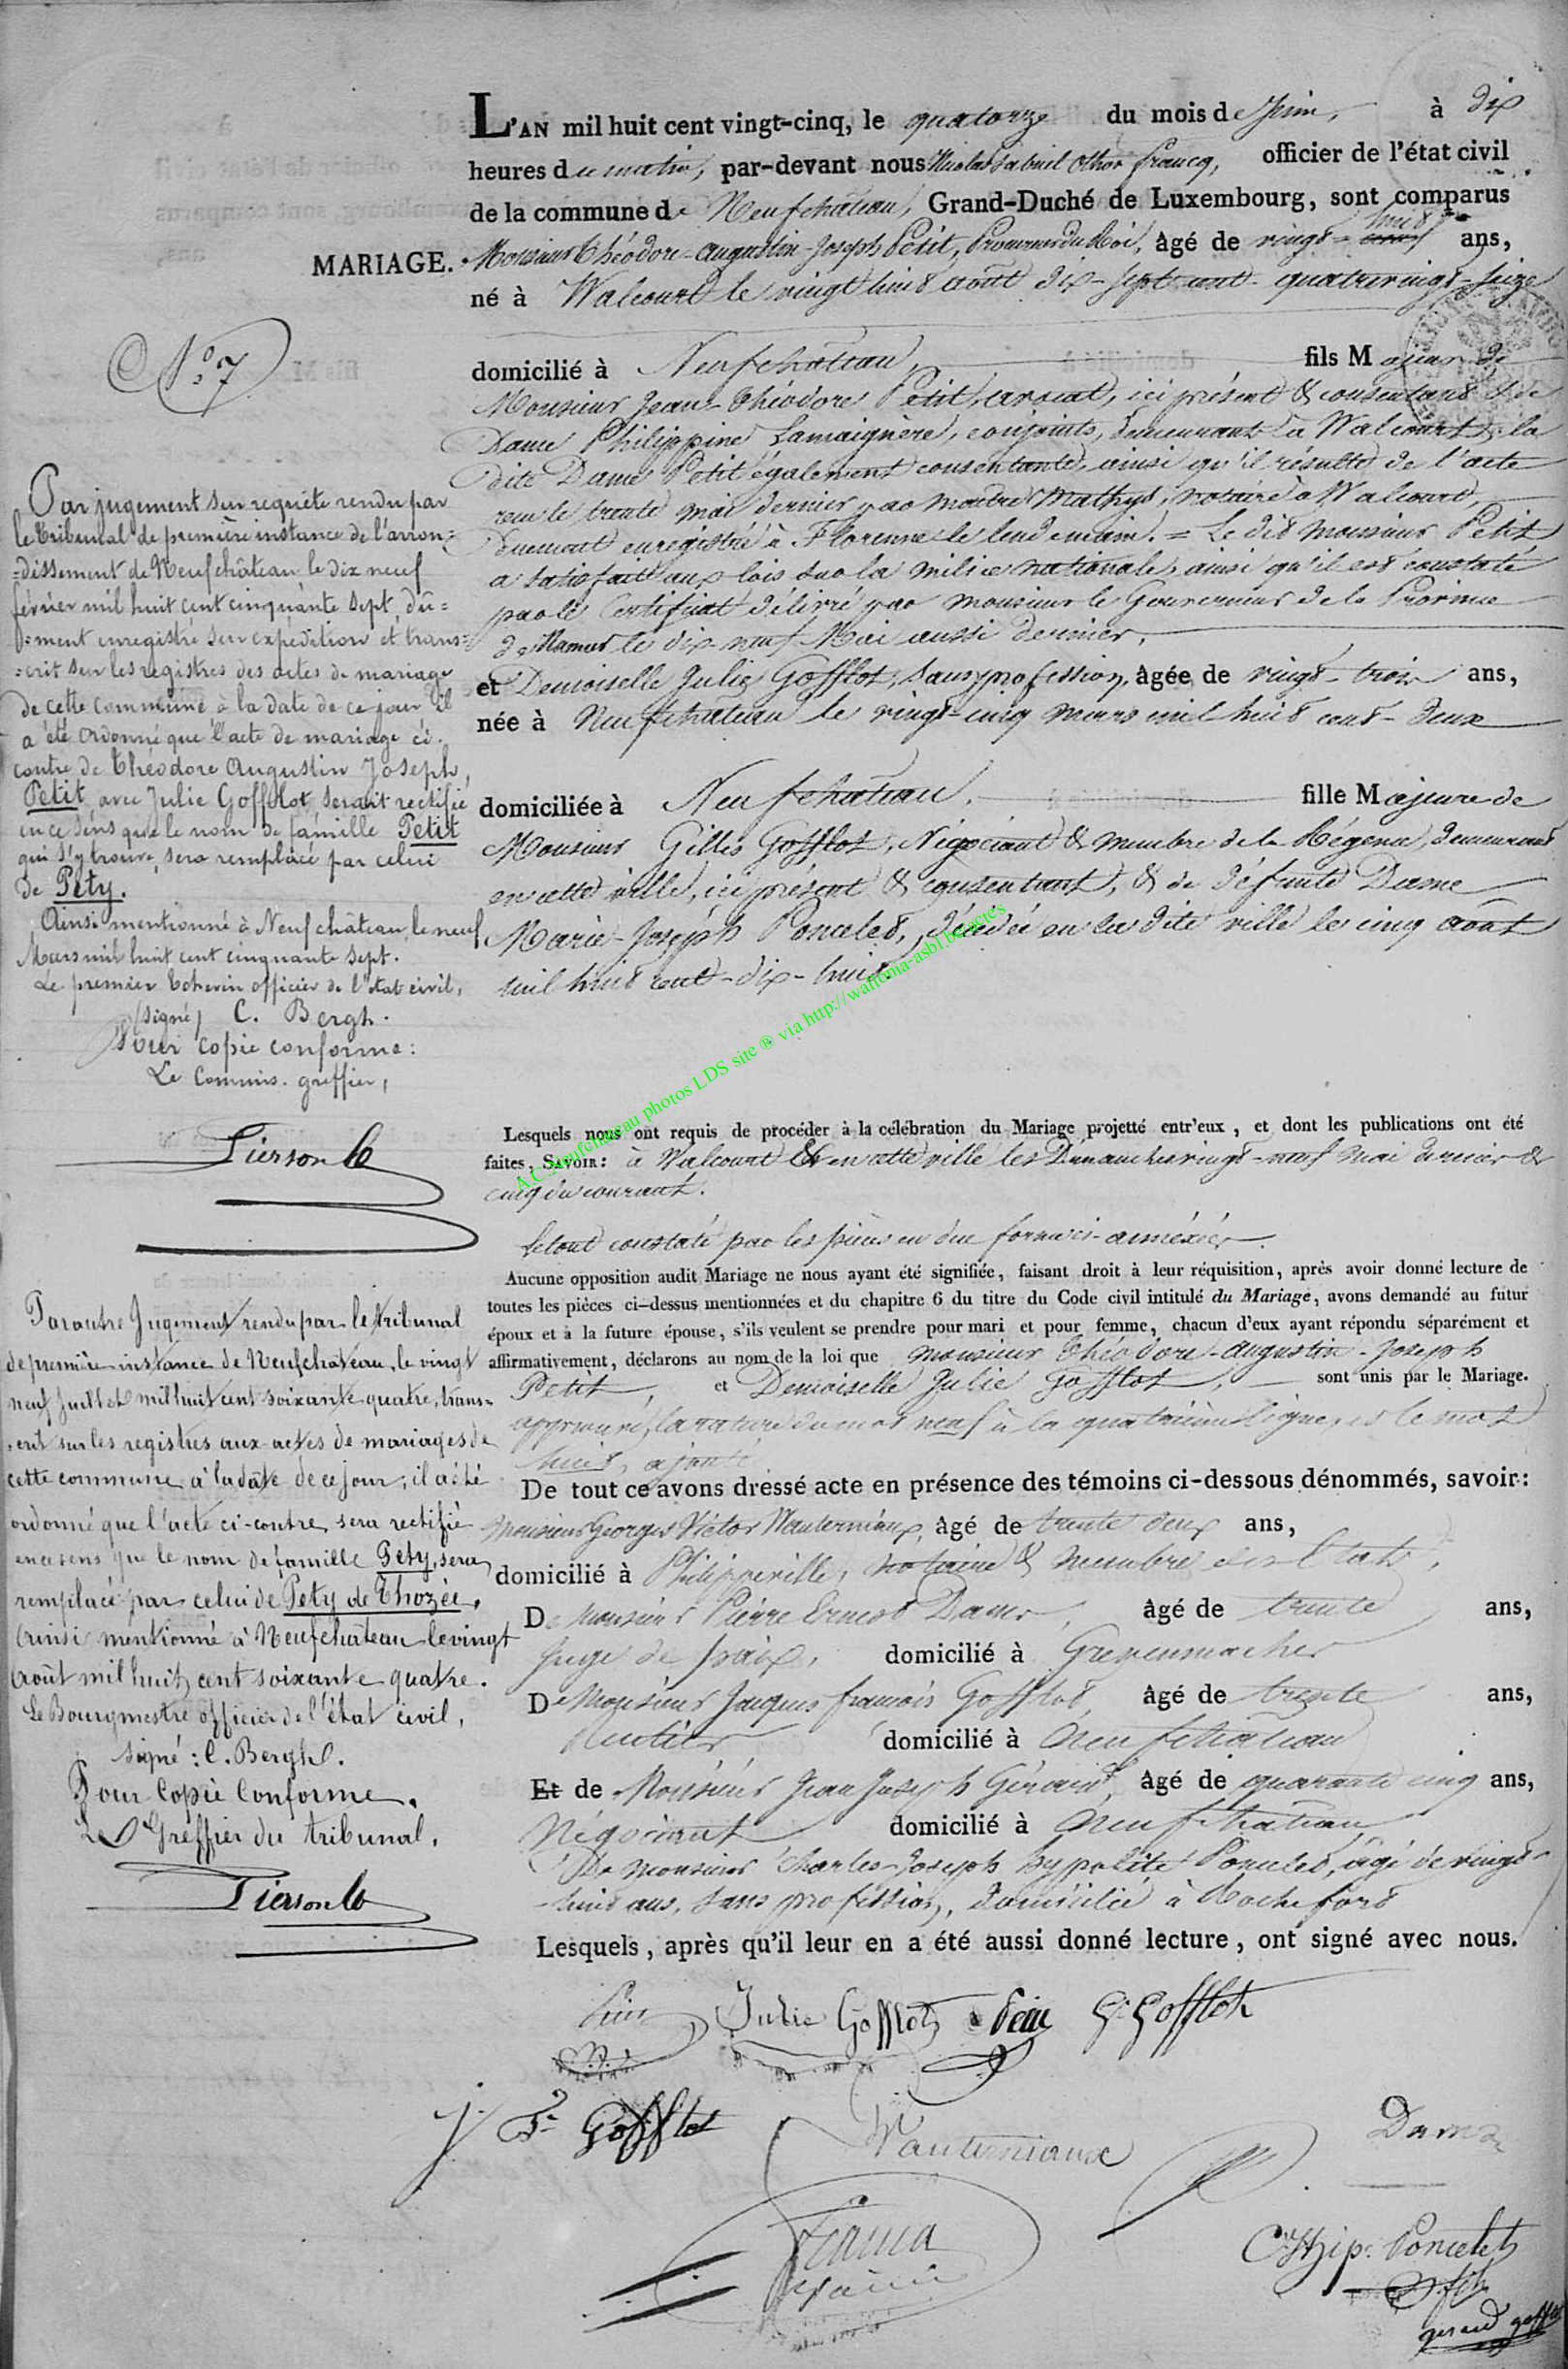 L'AN mil huit cent vingt-cinq, le quatorze du mois de Juin, à dix
heures du matin, par-devant nous Nicolas Gabriel Othon Francq, officier de l'état civil
de la commune de Neufchateau, Grand-Duché de Luxembourg, sont comparus
MARIAGE.
Monsieur Théodore-Augustin-Joseph Petit, Procureur du Roi, âgé de vingt-huit ans,
né à Walcourt le vingt huit août dix-sept cent quatrevingt-seize
domicilié à Neufchateau, fils Majeur de
Monsieur Jean-Théodore Petit, avocat, ici présent & consentant & de
Dame Philippine Lamaignère, conjoints, demeurant à Walcourt, la
dite Dame Petit également consentante, ainsi qu'il résulte de l'acte
reçu le trente mai dernier par maître Mathys, notaire à Walcourt,
duement enregistré à Florenne le lendemain. = Le dit monsieur Petit
a satisfait aux lois sur la milice nationale, ainsi qu'il est constaté
par le Certificat délivré par monsieur le Gouverneur de la Province
de Namur le dix-neuf Mai aussi dernier,
et Demoiselle Julie Gofflot, sans profession, âgée de vingt-trois ans,
née à Neufchateau le vingt-cinq mars mil huit cent-deux
domiciliée à Neufchateau, fille Majeure de
Monsieur Gilles Gofflot, Négociant & membre de la Régence, demeurant
en cette ville, ici présent & consentant, & de défunte Dame
Marie-Joseph Poncelet, décédée en la dite ville le cinq août
mil huit cent-dix-huit
Lesquels nous ont requis de procéder à la célébration du Mariage projetté entr'eux, et dont les publications ont été
faites, SAVOIR: à Walcourt & en cette ville les Dimanches vingt-neuf mai dernier &
cinq du courant.
le tout constaté par les pièces en due forme ci-annexées.
Aucune opposition audit Mariage ne nous ayant été signifiée, faisant droit à leur réquisition, après avoir donné lecture de
toutes les pièces ci-dessus mentionnées et du chapitre 6 du titre du Code civil intitulé du Mariage, avons demandé au futur
époux et à la future épouse, s'ils veulent se prendre pour mari et pour femme, chacun d'eux ayant répondu séparément et
affirmativement, déclarons au nom de la loi que monsieur Théodore-Augustin-Joseph
Petit, et Demoiselle Julie Gofflot, sont unis par le Mariage.
approuvé la rature du mot neuf à la quatrième ligne, et le mot
huit, ajouté
De tout ce avons dressé acte en présence des témoins ci-dessous dénommés, savoir:
Monsieur Georges Victor Wauterniaux, âgé de trente deux ans,
domicilié à Philippeville, notaire & membre des Etats,
De Monsieur Pierre Ernest Dams, âgé de trente ans,
Juge de paix, domicilié à Grevenmacher
De Monsieur Jacques François Gofflot, âgé de trente ans,
Rentier domicilié à Neufchateau
Et de Monsieur Jean Joseph Gérard, âgé de quarante cinq ans,
Négociant domicilié à Neufchateau
De monsieur Charles-Joseph hyppolite Poncelet, âgé de vingt-
huit ans, sans profession, domicilié à Rochefort
Lesquels, après qu'il leur en a été aussi donné lecture, ont signé avec nous.
Julie Gofflot Petit G. Gofflot
J. F. Gofflot Wauterniaux Dams
C. J. Hip. Poncelet
gerard
No. 7
Par jugement sur requête rendu par
le Tribunal de première instance de l'arron=
=dissement de Neufchâteau le dix neuf
février mil huit cent cinquante sept, dû=
=ment enregistré sur expédition et trans=
=crit sur les registres des actes de mariage
de cette commune à la date de ce jour il
a été ordonné que l'acte de mariage ci-
contre de Théodore Augustin Joseph
Petit avec Julie Gofflot serait rectifié
en ce sens que le nom de famille Petit
qui s'y trouve sera remplacé par celui
de Pety.
Ainsi mentionné à Neufchâteau le neuf
Mars mil huit cent cinquante sept.
Le premier Echevin officier de l'état civil,
(signé) C. Bergh.
Pour copie conforme:
Le Commis-greffier,
Pierson
Par autre Jugement rendu par le tribunal
de première instance de Neufchateau, le vingt
neuf Juillet mil huit cent soixante quatre, trans=
=crit sur les registres aux actes de mariages de
cette commune à la date de ce jour; il a été
ordonné que l'acte ci-contre sera rectifié
en ce sens que le nom de famille Pety, sera
remplacé par celui de Pety de Thozée.
Ainsi mentionné à Neufchâteau le vingt
Août mil huit cent soixante quatre.
Le Bourgmestre officier de l'état civil,
Signé: C. Bergh.
Pour Copie Conforme.
Le Greffier du tribunal,
Pierson
A.C. Neufchateau photos LDS site ® via http://wallonia-asbl.be/actes